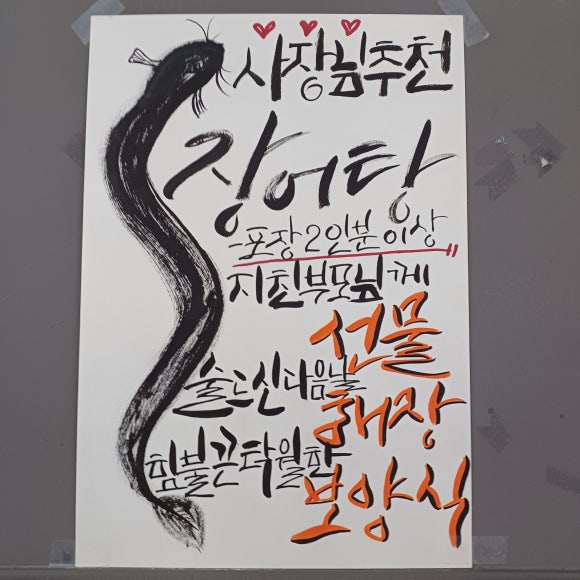 사장님추천
장어탕
-포장2인분이상
지친부모님께
선물
술드신다음날
해장
힘불끈탁월한
보양식